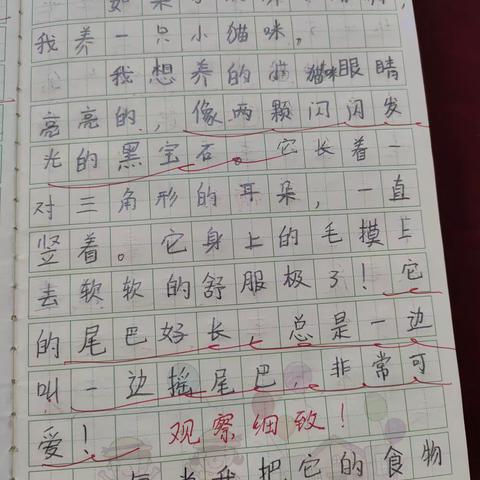 我养一只小猫咪，
我想养的猫猫咪眼睛
亮亮的，像两颗闪闪发
光的黑宝石。它长着一
对三角形的耳朵，一直
竖着。它身上的毛摸上
去软软的舒服极了！它
的尾巴好长，总是一边
叫一边摇尾巴，非常可
爱！观察细致！
当我把它的食物